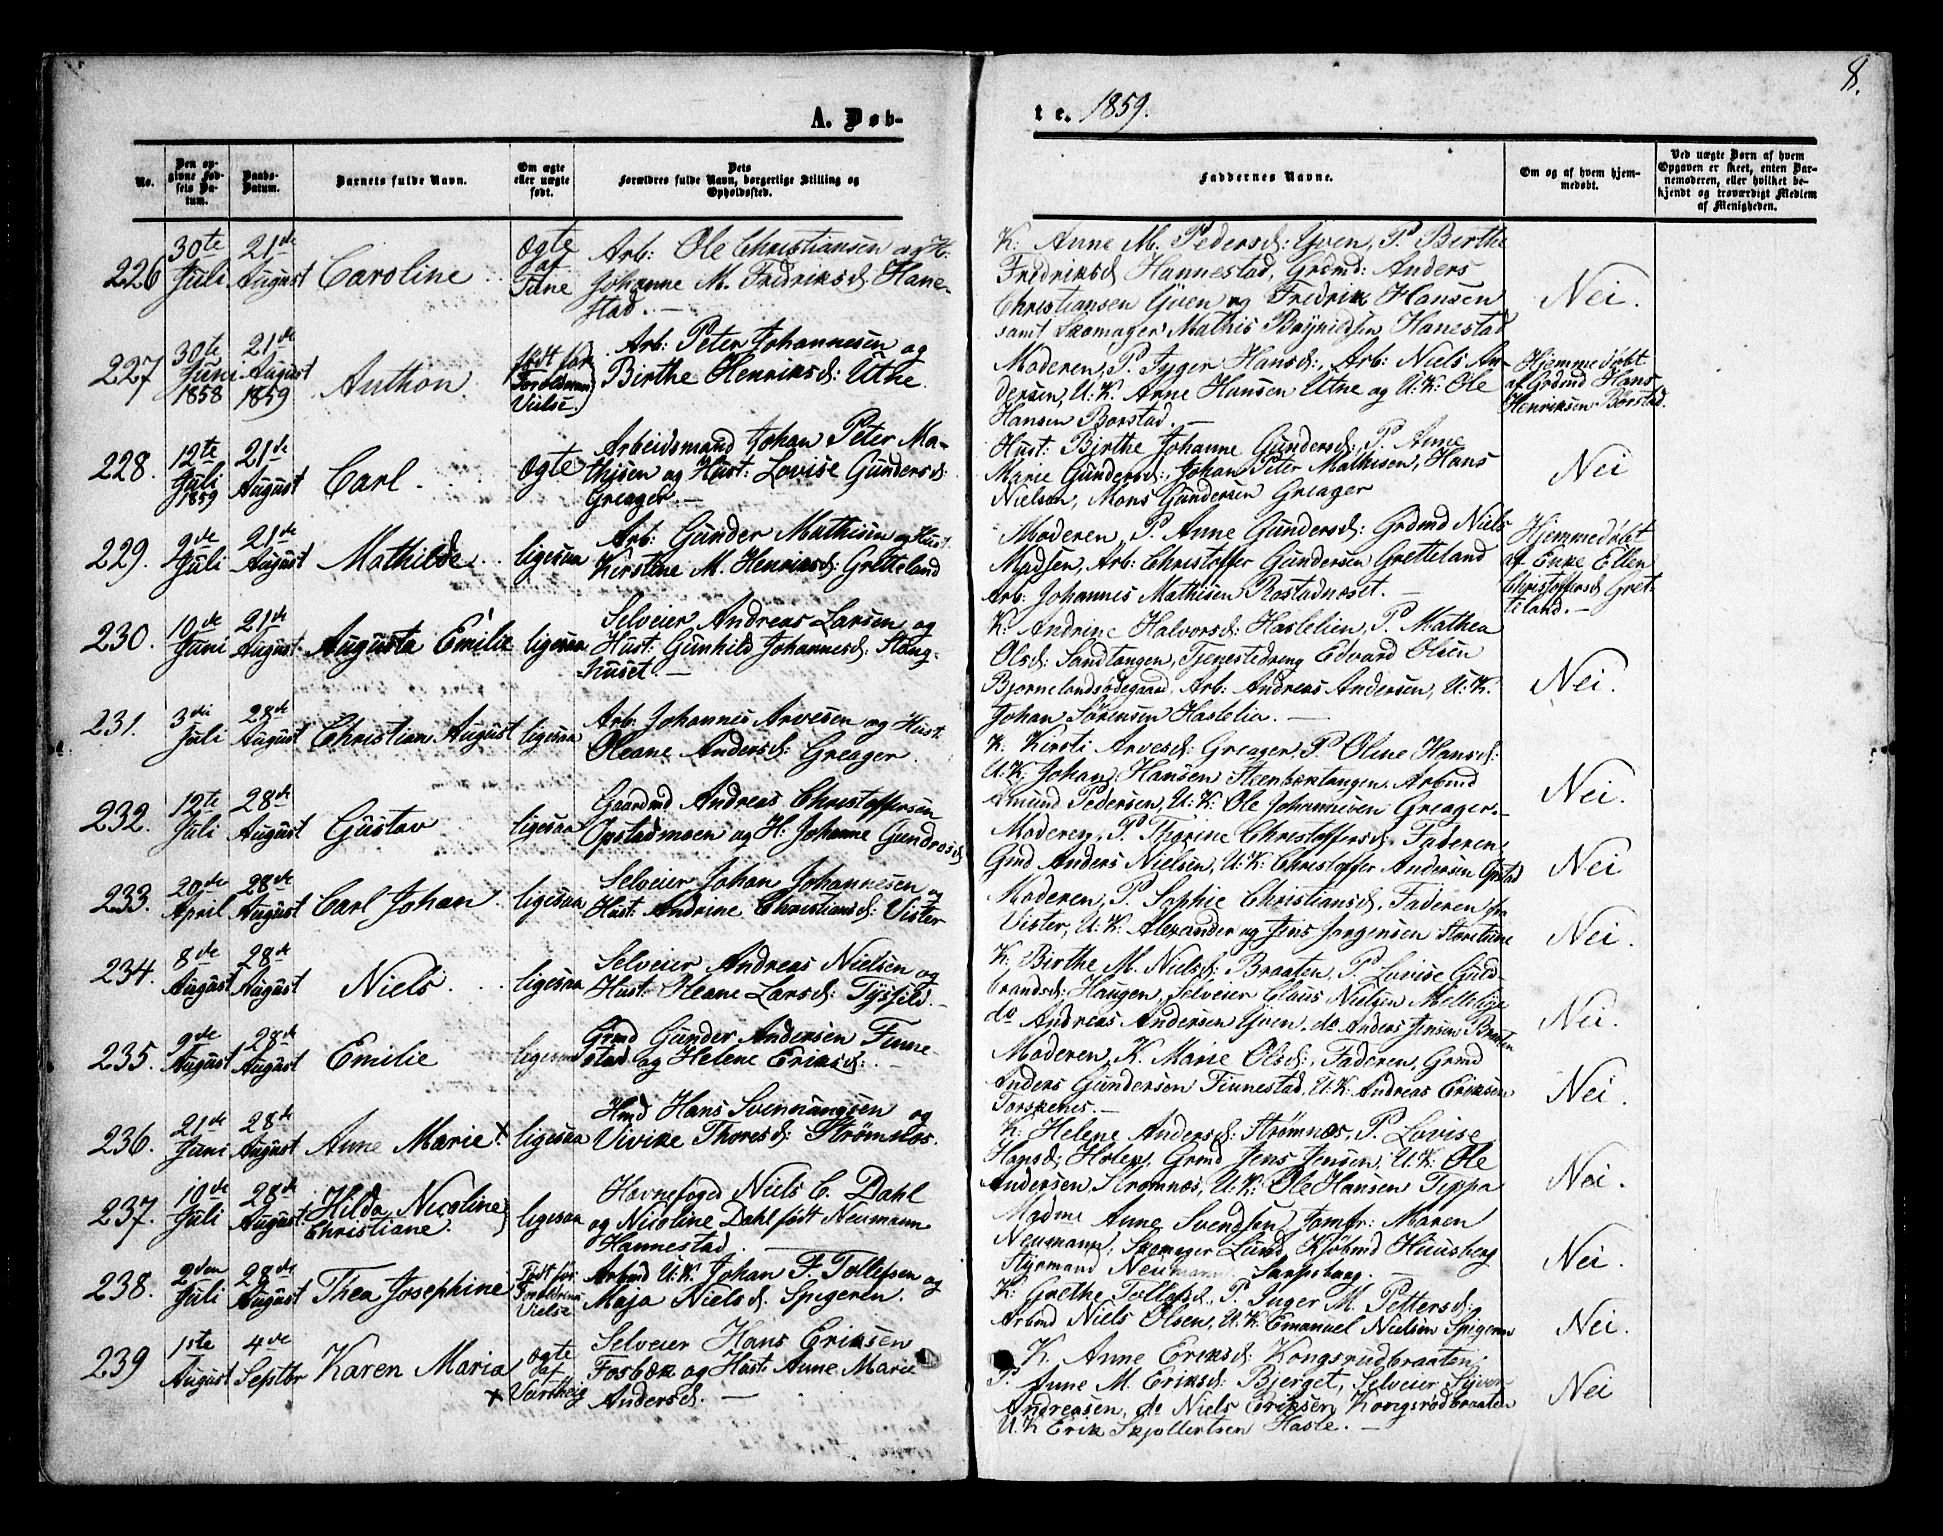 8.
A. Døb-
te. 1859.
No.
Den op-
givne Fød-
sels Da-
tum.
Daabs-
Datum.
Barnets fulde Navn.
Om ægte
eller uægte
født.
Dets
Forældres fulde Navn, borgerlige Stilling og
Opholdssted.
Faddernes Navne.
Om og af hvem hjem-
medøbt.
Ved uægte Børn af hvem
Opgaven er skeet, enten Bar-
nemoderen, eller hvilket be-
kjendt og troværdigt Medlem
af Menigheden.
226
30te
Juli
21de
August
Caroline
Ægte
af
Tune
Arb: Ole Christiansen og H:
Johanne M. Fredriksd: Hane-
stad. —
K: Anne M. Pedersd: Yven, P. Birthe
Fredriksd Hannestad, Grdmd: Anders
Christiansen Yven og Fredrik Hansen
samt Skomager Mathis Hanestad
Nei.
227
30te
Juni
1858
21de
August
1859
Anthon
født før
Forældrenes
Vielse.
Arb: Peter Johannesen og
Birthe Henriksd: Utne
Moderen, P. Hansd:, Arb: Niels An-
dersen, U.K. Arne Hansen Utne og U.K: Ole
Hansen Borstad. —
Hjemmedøbt
af Grdmd Hans
Henriksen Børstad.
228.
12te
Juli
1859
21de
August
Carl
Ægte
Arbeidsmand Johan Peter Ma-
thisen og Hust: Lovise Gundersd:
Greager —
Hust: Birthe Johanne Gundersd:, P. Anne
Marie Gundersd:, Johan Peter Mathisen, Hans
Nielsen, Mons Gundersen Greager
Nei
229.
9de
Juli
21de
August
Mathilde
ligesaa
Arb: Gunder Mathisen og Hust:
Kirstine M. Henriksd: Gretteland
Moderen, P. Anne Gundersd: Grdmd Niels
Madsen, Arb: Christoffer Gundersen Gretteland
Arb: Johannes Mathisen Rostadnæset. —
Hjemmedøbt
af Enke Ellen
Christoffersd Gret-
teland. —
230.
10de
Juni
21de
August
Augusta Emilie
ligesaa
Selveier Andreas Larsen og
Hust: Gunhild Johannesd: Stang-
huset. —
K: Andrine Halvorsd: Haslelien, P. Mathea
Olsd: Sandtangen, Tjenestedreng Edvard Olsen
Bjørnelandsødegaard, Arb: Andreas Andersen, U.K.
Johan Sørensen Haslelia. —
Nei.
231.
3die
Juli
28de
August
Christian August
ligesaa
Arb: Johannes Arvesen og Hust:
Oleane Andersd: Greager.
K. Kirsti Arvesd: Greager, P. Oline Hansd:
U.K. Johan Hansen Steenbæktangen, Arbmd
Amund Pedersen, U.K: Ole Johannesen Greager. —
Nei.
232.
12te
Juli
28de
August
Gustav
ligesaa
Gaardmd Andreas Christoffersen
Opstadmoen og H: Johanne Gundrosd
Moderen, P. Thorine Christoffersd: Faderen,
Gmd Anders Nielsen, U.K: Christoffer Andersen Opstad
Nei
233.
20de
April
28de
August
Carl Johan
ligesaa
Selveier Johan Johannesen og
Hust: Andrine Christiansd: Vister
Moderen, P. Sophie Christiansd. Faderen fra
Vister, U.K: Alexander og Jens Jørgensen Storetune
Nei.
234.
8de
August
28de
August
Niels
ligesaa
Selveier Andreas Nielsen og
Hust: Oleane Larsd:
K: Birthe M. Nielsd: Braaten, P. Lovise Guld-
brandsd: Haugen, Selveier Claus Nielsen
do Andreas Andersen Yven, do Anders Jensen Braaten
Nei.
235.
9de
August
28de
August
Emilie
ligesaa
Gmd Gunder Andersen Finne-
stad og Helene Eriksd: —
Moderen, K. Marie Olsd:, Faderen, Grmd
Anders Gundersen Finnestad, U.K. Andreas Eriksen
Torskenes. —
Nei.
236.
21de
Juni
28de
August
Anne Marie X
ligesaa
Hmd Hans Svennungsen og
Vivike Thoresd: Strømnæs.
K: Helene Andersd: Strømnæs, P. Lovise
Hansd: Holen, Grmd Jens Jensen, U.K: Ole
Andersen, Strømnæs, U.K: Ole Hansen Tippa
Nei.
237.
10de
Juli
28de
August
Hilda Nicoline
Christiane
ligesaa
Havnefoged Niels C. Dahl
og Nicoline Dahl født Neumann
Hannestad.
Madme Anne Svendsen, Jomfr: Maren
Neumann, Skomager Lund, Kjøbmd Huusberg
Styrmand Neumann Sarpsborg. —
Nei.
238.
2den
Juli
28de
August
Thea Josephine
Født før
Forældrenes
Vielse
Arbmd U.K. Johan F. Tollefsen og
Maja Nielsd. Spigeren.
K: Grethe Tollefsd., P. Inger M. Pettersd:
Arbmd Niels Olsen, U.K. Emanuel Nielsen Spigeren
Nei.
239
1ste
August
4de
Septbr
Karen Maria
X
Ægte
af
Varteig
Selveier Hans Eriksen
Fosbæk og Hust: Anne Marie
Andersd. —
K. Anne Eriksd: Kongsrudbraaten.
P. Anne M. Eriksd: Bjerget, Selveier Syver
Andreasen, do Niels Eriksen Kongsrødbraaten
U.K Erik Skjollertsen Hasle. —
Nei